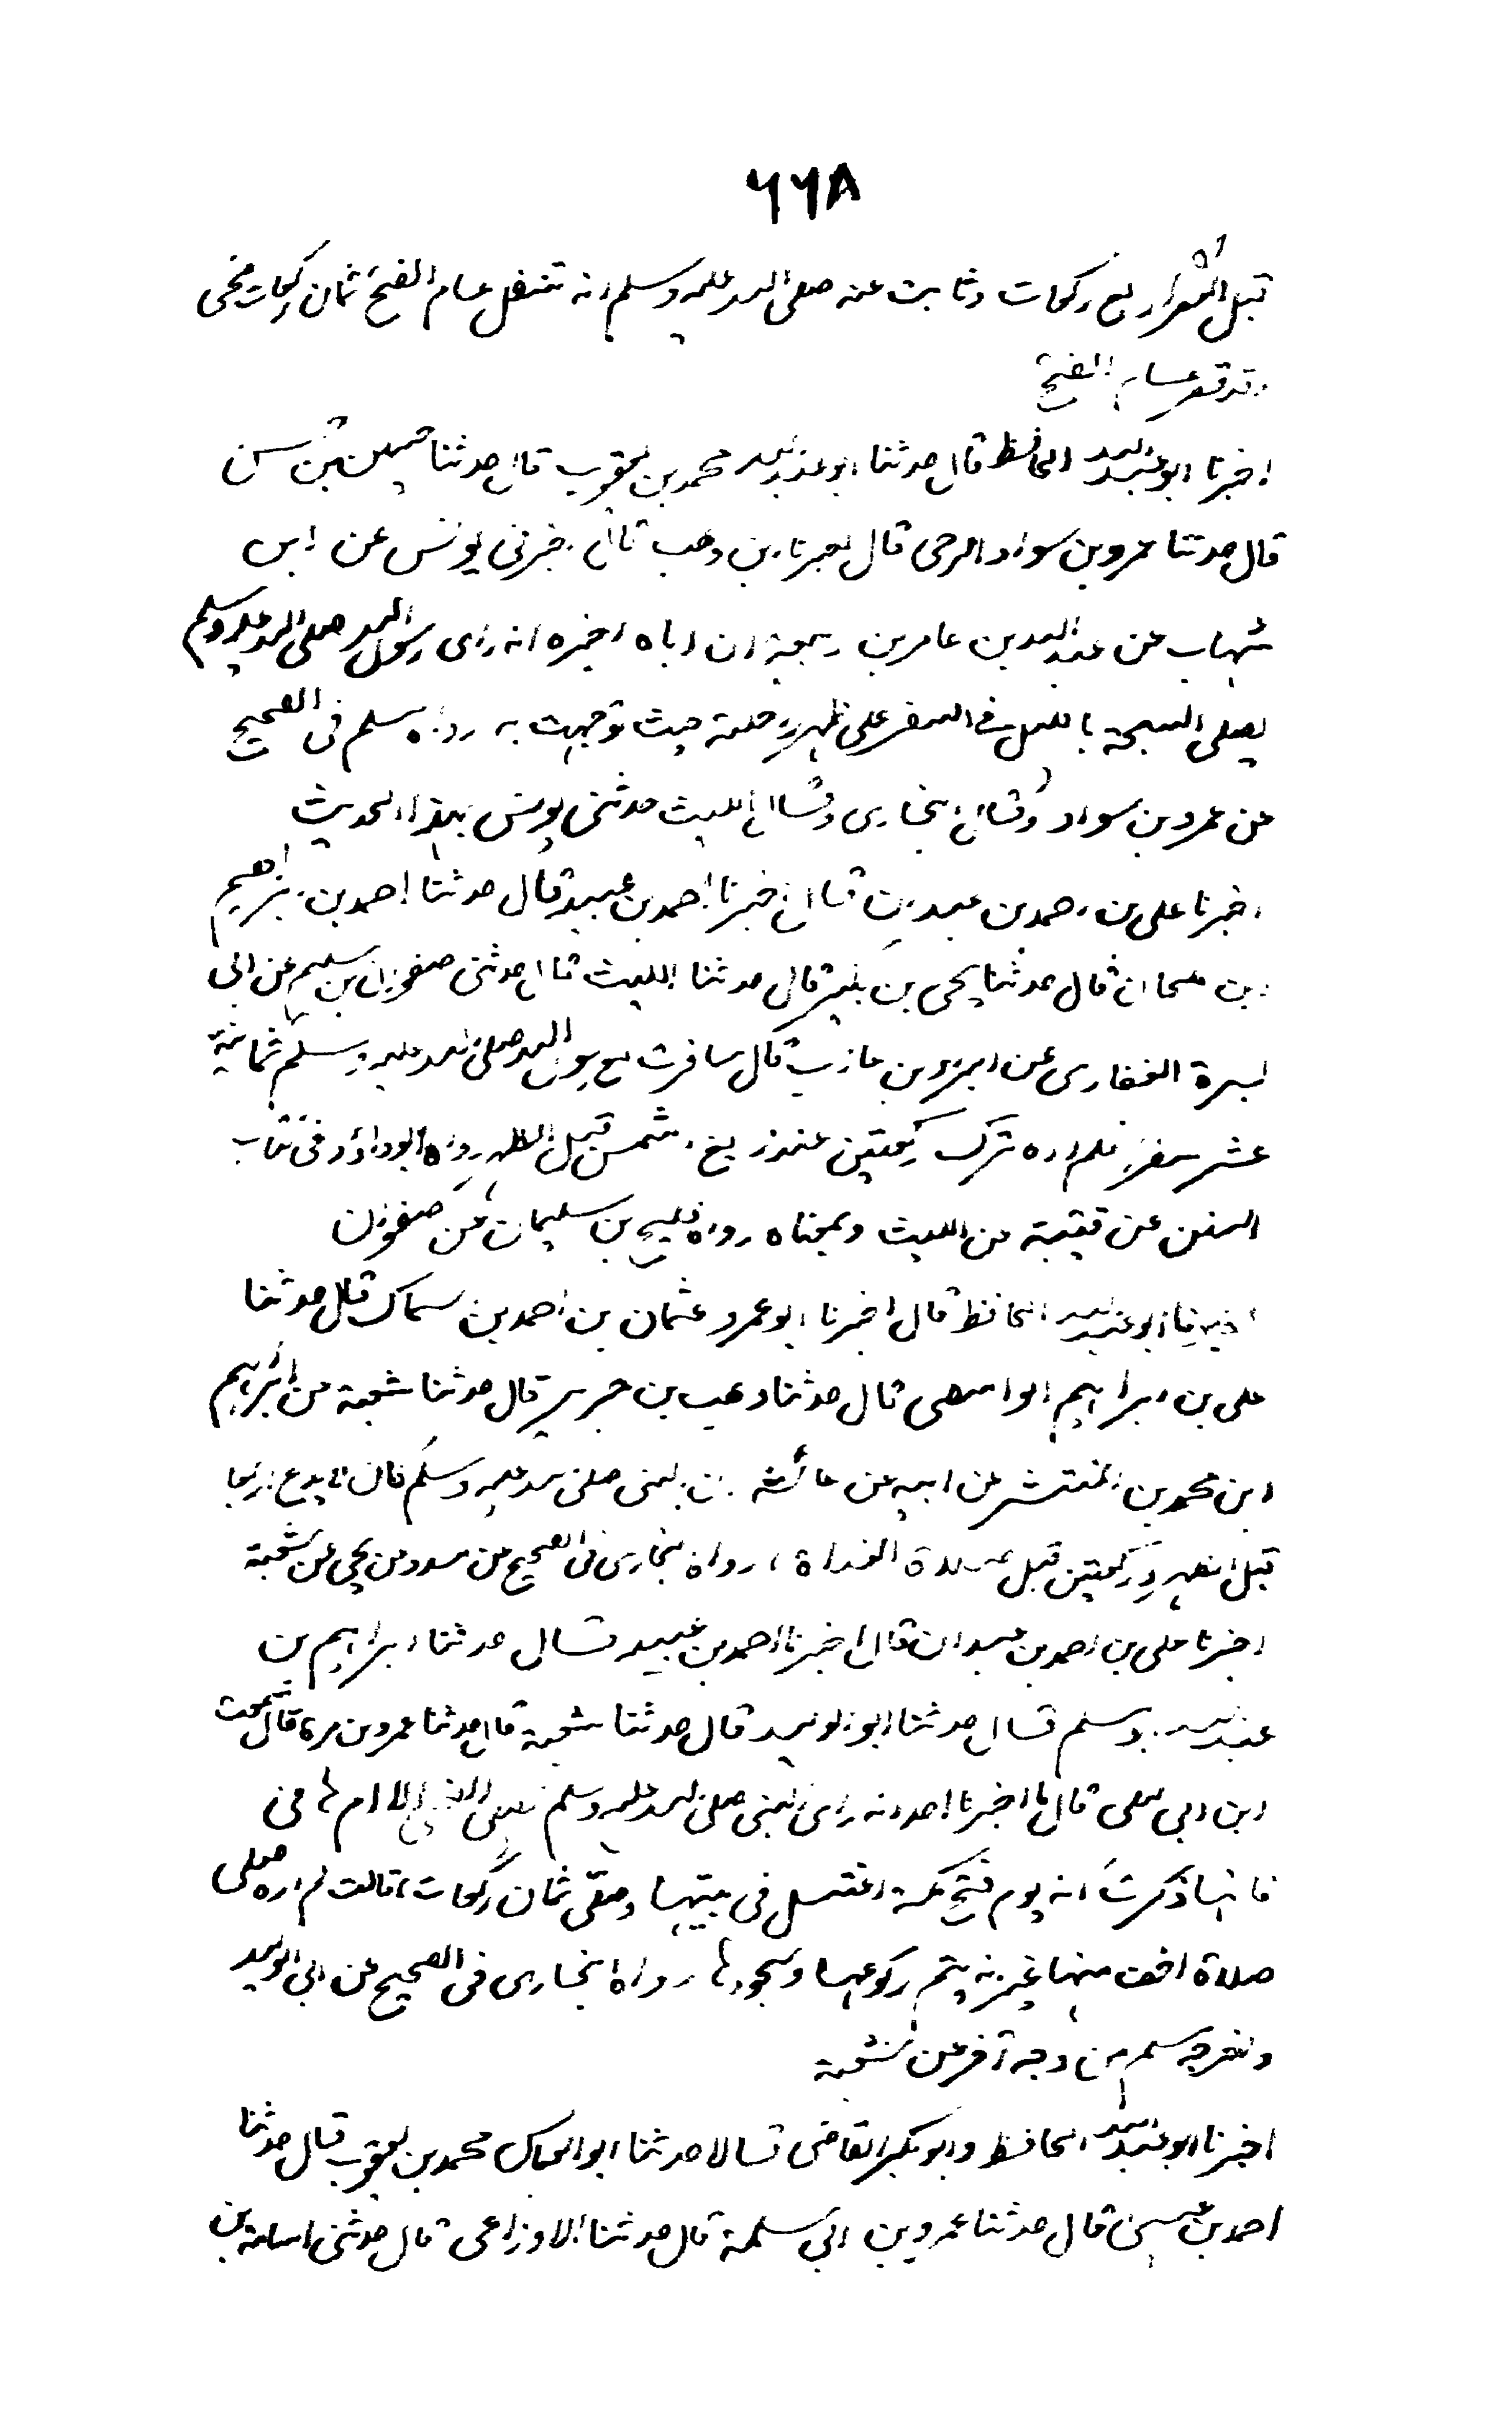 ٦٦٨
قبل الظهر اربع ركعات وثابت عنه صلى الله عليه وسلم انه تنفل عام الفتح ثمان ركعات ضحى
وقد قصر عام الفتح
اخبرنا ابو عبد الله الحافظ قال حدثنا ابو عبد الله محمد بن يعقوب قال حدثنا حسين بن حسن
قال حدثنا عمرو بن سواد السرحى قال اخبرنا ابن وهب قال اخبرنى يونس عن ابن
شهاب عن عبد الله بن عامر بن ربيعة ان اباه اخبره انه راى رسول الله صلى الله عليه وسلم
يصلى السبحة بالليل فى السفر على ظهر راحلته حيث توجهت به رواه مسلم فى الصحيح
عن عمرو بن سواد وقال البخارى وقال الليث حدثنى يونس بهذا الحديث
اخبرنا على بن احمد بن عبدان قال اخبرنا احمد بن عبيد قال حدثنا احمد بن ابراهيم
ابن ملحان قال حدثنا يحيى بن بكير قال حدثنا الليث قال حدثنى صفوان بن سليم عن ابى
بسرة الغفارى عن البراء بن عازب قال سافرت مع رسول الله صلى الله عليه وسلم ثمانية
عشر سفرا فلم اره ترك ركعتين عند زيغ الشمس قبل الظهر رواه ابو داؤد فى كتاب
السنن عن قتيبة عن الليث وبمعناه رواه فليح بن سليمان عن صفوان
اخبرنا ابو عبد الله الحافظ قال اخبرنا ابو عمرو عثمان بن احمد بن سماك قال حدثنا
على بن ابراهيم الواسطى قال حدثنا وهب بن جرير قال حدثنا شعبة عن ابراهيم
ابن محمد بن المنتشر عن ابيه عن عائشة ان النبى صلى الله عليه وسلم كان لا يدع اربعا
قبل الظهر وركعتين قبل صلاة الغداة، رواه البخارى فى الصحيح عن مسدد عن يحيى عن شعبة
اخبرنا على بن احمد بن عبدان قال اخبرنا احمد بن عبيد قال حدثنا ابراهيم بن
عبد الله ابو مسلم قال حدثنا ابو الوليد قال حدثنا شعبة قال حدثنا عمرو بن مرة قال سمعت
ابن ابى ليلى قال ما اخبرنا احد انه راى النبى صلى الله عليه وسلم يصلى الضحى الا ام هانى
فانها ذكرت انه يوم فتح مكة اغتسل فى بيتها وصلى ثمان ركعات، قالت لم اره صلى
صلاة اخف منها غير انه يتم ركوعها وسجودها رواه البخارى فى الصحيح عن ابى الوليد
واخرجه مسلم من وجه آخر عن شعبة
اخبرنا ابو عبد الله الحافظ وابو بكر القاضى قالا حدثنا ابو العباس محمد بن يعقوب قال حدثنا
احمد بن عيسى قال حدثنا عمرو بن ابى سلمة قال حدثنا الاوزاعى قال حدثنى اسامة بن